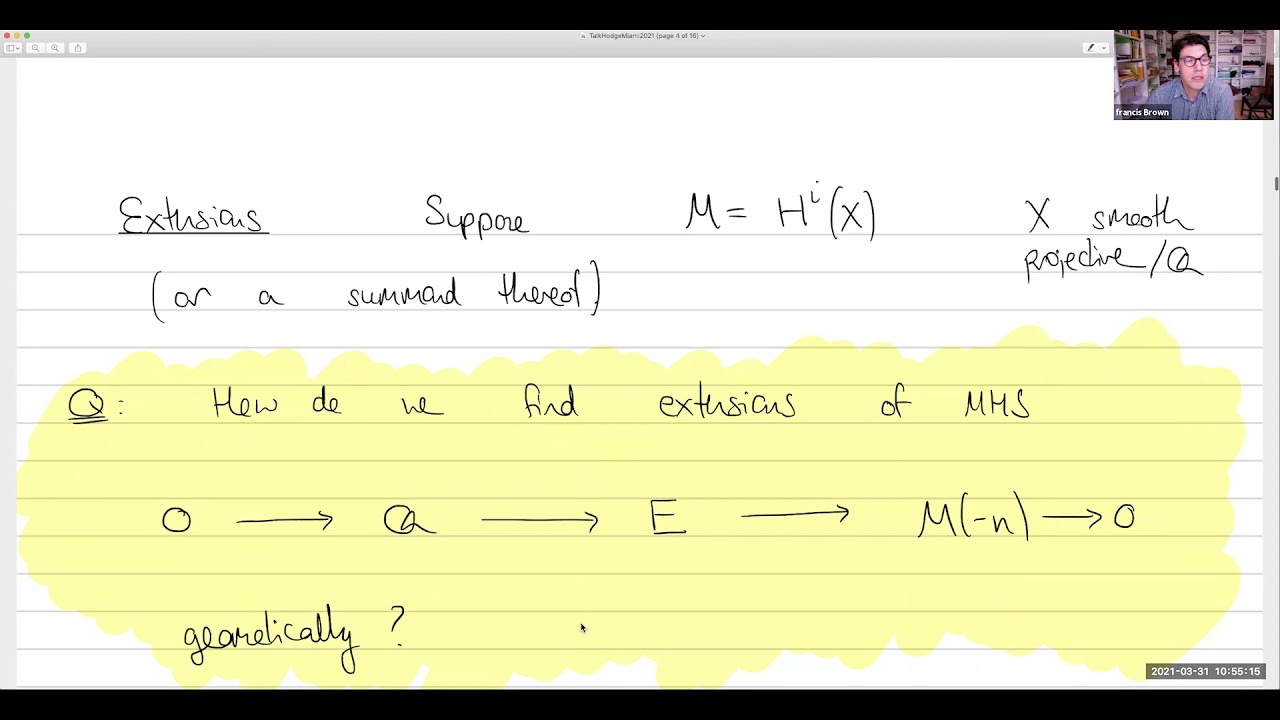 TalkHodgeMiami2021 (page 4 of 16)
francis Brown
Extensions Suppose M = Hⁱ(X) X smooth projective/ℚ
(or a summand thereof)
Q: How do we find extensions of MHS
0 → ℚ → E → M(-n) → 0
geometrically?
2021-03-31 10:55:15